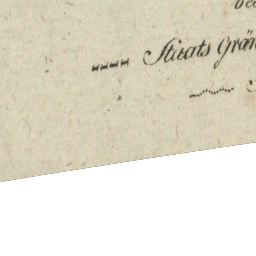 Staats Grän